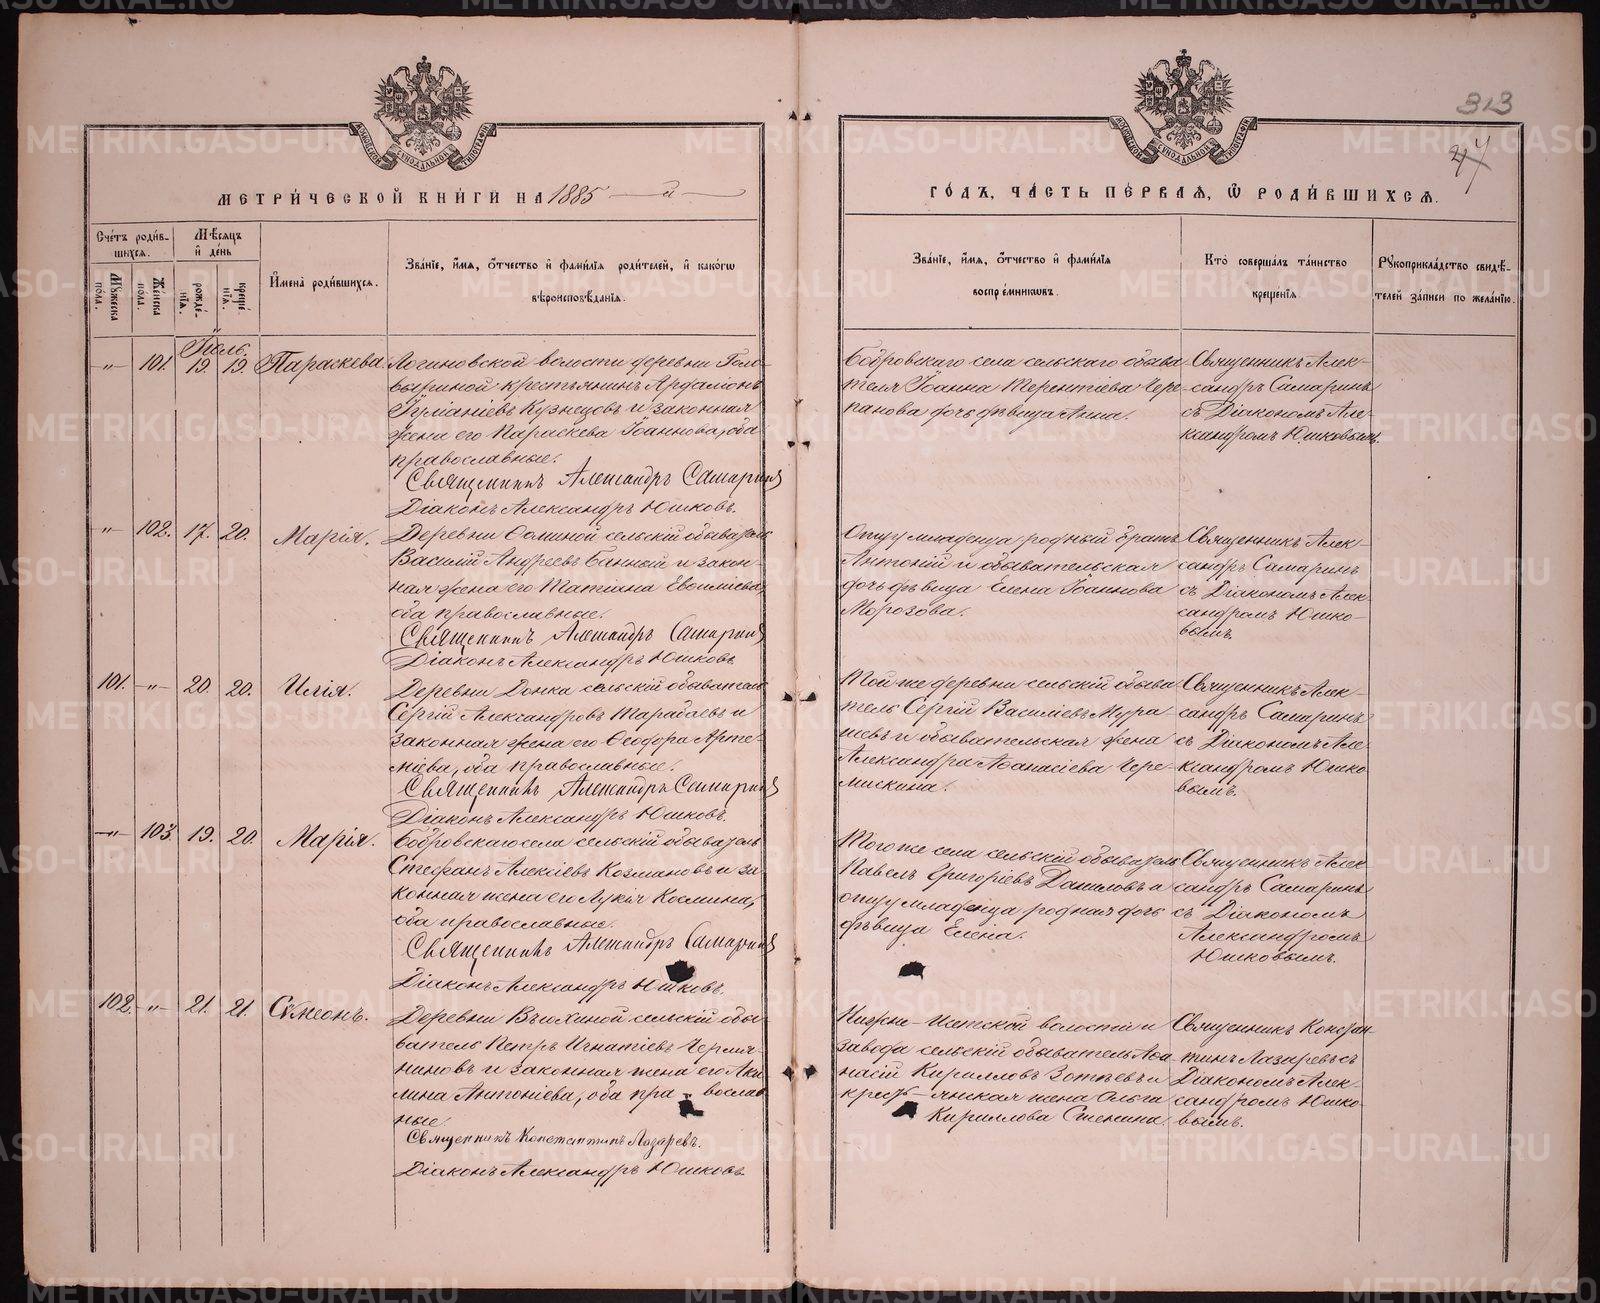 313
47
МЕТРИ́ЧЕСКОЙ КНИ́ГИ НА 1885 й
ГО́ДЪ, ЧА́СТЬ ПЕ́РВАЯ, Ѡ РОДИ́ВШИХСЯ.
Сче́тъ роди́в-
шихся.
Мѣ́сяцъ
и день
Му́жеска
по́ла.
Же́нска
по́ла.
рожде́-
нія.
креще́
нія.
Имена̀ роди́вшихся.
Зва́ніе, и́мя, о́тчество и фами́лія роди́телей, и како́гѡ
вѣроисповѣ́данія.
Зва́ніе, и́мя, о́тчество и фами́лія
воспріе́мниковъ.
Кто̀ соверша́лъ та́инство
креще́нія.
Рукоприкла́дство свидѣ́-
телей за́писи по жела́нію.
Іюль.
-"- 101. 19. 19. Параскева.
Логиновской волости деревни Голо-
выриной крестьянинъ Ардаліонъ
Кузнецовъ и законная
жена его Параскева Іоаннова, оба
православные.
Священникъ Александръ Самаринъ
Діаконъ Александръ Юшковъ.
Бобровскаго села сельскаго обыва
теля Іоанна Терентіева Чере-
панова дочь дѣвица Анна.
Священникъ Алек-
сандръ Самаринъ
съ Діакономъ Але-
ксандромъ Юшковымъ.
-"- 102. 17. 20. Марія.
Деревни Ѳоминой сельскій обыватель
Василій Андреевъ Банный и закон-
ная жена его Татіана Евѳиміева,
оба православные.
Священникъ Александръ Самаринъ
Діаконъ Александръ Юшковъ
Отцу младенца родный братъ
Антоній и обывательская
дочь дѣвица Елена Іоаннова
Морозова.
Священникъ Алек-
сандръ Самаринъ
съ Діакономъ Алек-
сандромъ Юшко-
вымъ.
101. -"- 20. 20. Илія.
Деревни Донка сельскій обыватель
Сергій Александровъ Тарабаевъ и
законная жена его Ѳеодора Арте-
міева, оба православные.
Священникъ Александръ Самаринъ
Діаконъ Александръ Юшковъ.
Той же деревни сельскій обыва
тель Сергій Василіевъ Мура-
шевъ и обывательская жена
Александра Аѳанасіева Чере-
мискина.
Священникъ Алек-
сандръ Самаринъ
съ Діакономъ Але-
ксандромъ Юшко
вымъ.
-"- 103. 19. 20. Марія.
Бобровскаго села сельскій обыватель
Стефанъ Алексіевъ Козмановъ и за
конная жена его Лукія Космина,
оба православные.
Священникъ Александръ Самаринъ
Діаконъ Александръ Юшковъ.
Того же села сельскій обыватель
Павелъ Григоріевъ Даниловъ и
отцу младенца родная дочь
дѣвица Елена.
Священникъ Алек-
сандръ Самаринъ
съ Діакономъ
Александромъ
Юшковымъ.
102. -"- 21. 21. Сѵмеонъ.
Деревни Вьюхиной сельскій обы-
ватель Петръ Игнатіевъ Чермя-
ниновъ и законная жена его Аки-
лина Антоніева, оба пра-вослав
ные.
Священникъ Константинъ Лазаревъ.
Діаконъ Александръ Юшковъ
Нижне-Исетской волости и
завода сельскій обыватель Аѳа-
насій Кирилловъ Зотѣевъ и
крестьянская жена Ольга
Кириллова Стенина.
Священникъ Констан
тинъ Лазаревъ съ
Діакономъ Алек-
сандромъ Юшко-
вымъ.
METRIKI.GASO-URAL.RU